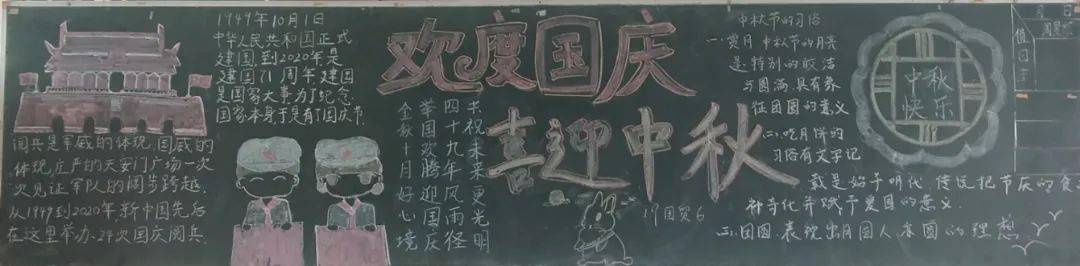 1949年10月1日
中华人民共和国正式
建国,到2020年是
建国71周年,建国
是国家大事,为了纪念,
国家本身于是有了国庆节.
阅兵是军威的体现,国威的
体现,庄严的天安门广场一次
次见证军队的阔步跨越.
从1949到2020年,新中国先后
在这里举办24次国庆阅兵.
欢度国庆
喜迎中秋
书祝未来更光明
四十九年风雨径
举国欢腾迎国庆
金秋十月好心境
19国贸6
中秋节的习俗
一.赏月 中秋节的月亮
是特别的皎洁
与圆满,具有养
征团圆的意义
二.吃月饼的
习俗有文字记
载是始于明代,传说把节庆的食
补奇化并赋予爱国的意义.
三.团圆,表现出月圆人亦圆的理想
中秋
快乐
月 日
值日生